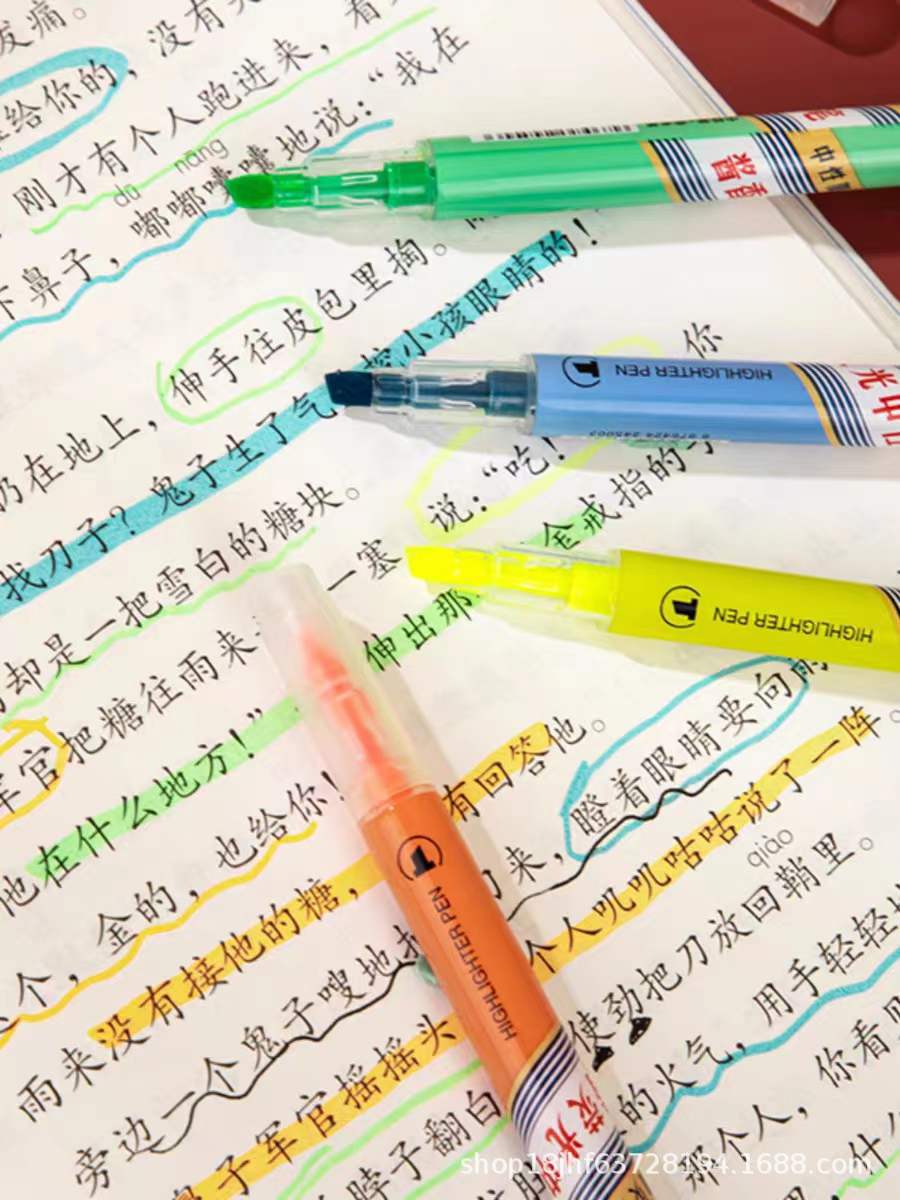 发痛。
给你的，没有
刚才有个人跑进来，看
dū nāng
鼻子，嘟嘟囔囔地说：“我在
伸手往皮包里掏。
扔在地上，挖小孩眼睛的！
找刀子？鬼子生了气
你
却是一把雪白的糖块。说：“吃！
军官把糖往雨来 一塞 伸出那 金戒指的手
他在什么地方！”
个，金的，也给你！有回答他。
雨来没有接他的糖，瞪着眼睛要向
旁边一个鬼子嗖地 来，个人叽叽咕咕说了一阵。
qiào
鬼子军官摇摇头 使劲把刀放回鞘里。
脖子翻白 的火气，用手轻轻
那个人，你看见
什么
HIGHLIGHTER PEN
HIGHLIGHTER PEN
HIGHLIGHTER PEN
荧光
shop18jhf63728194.1688.com